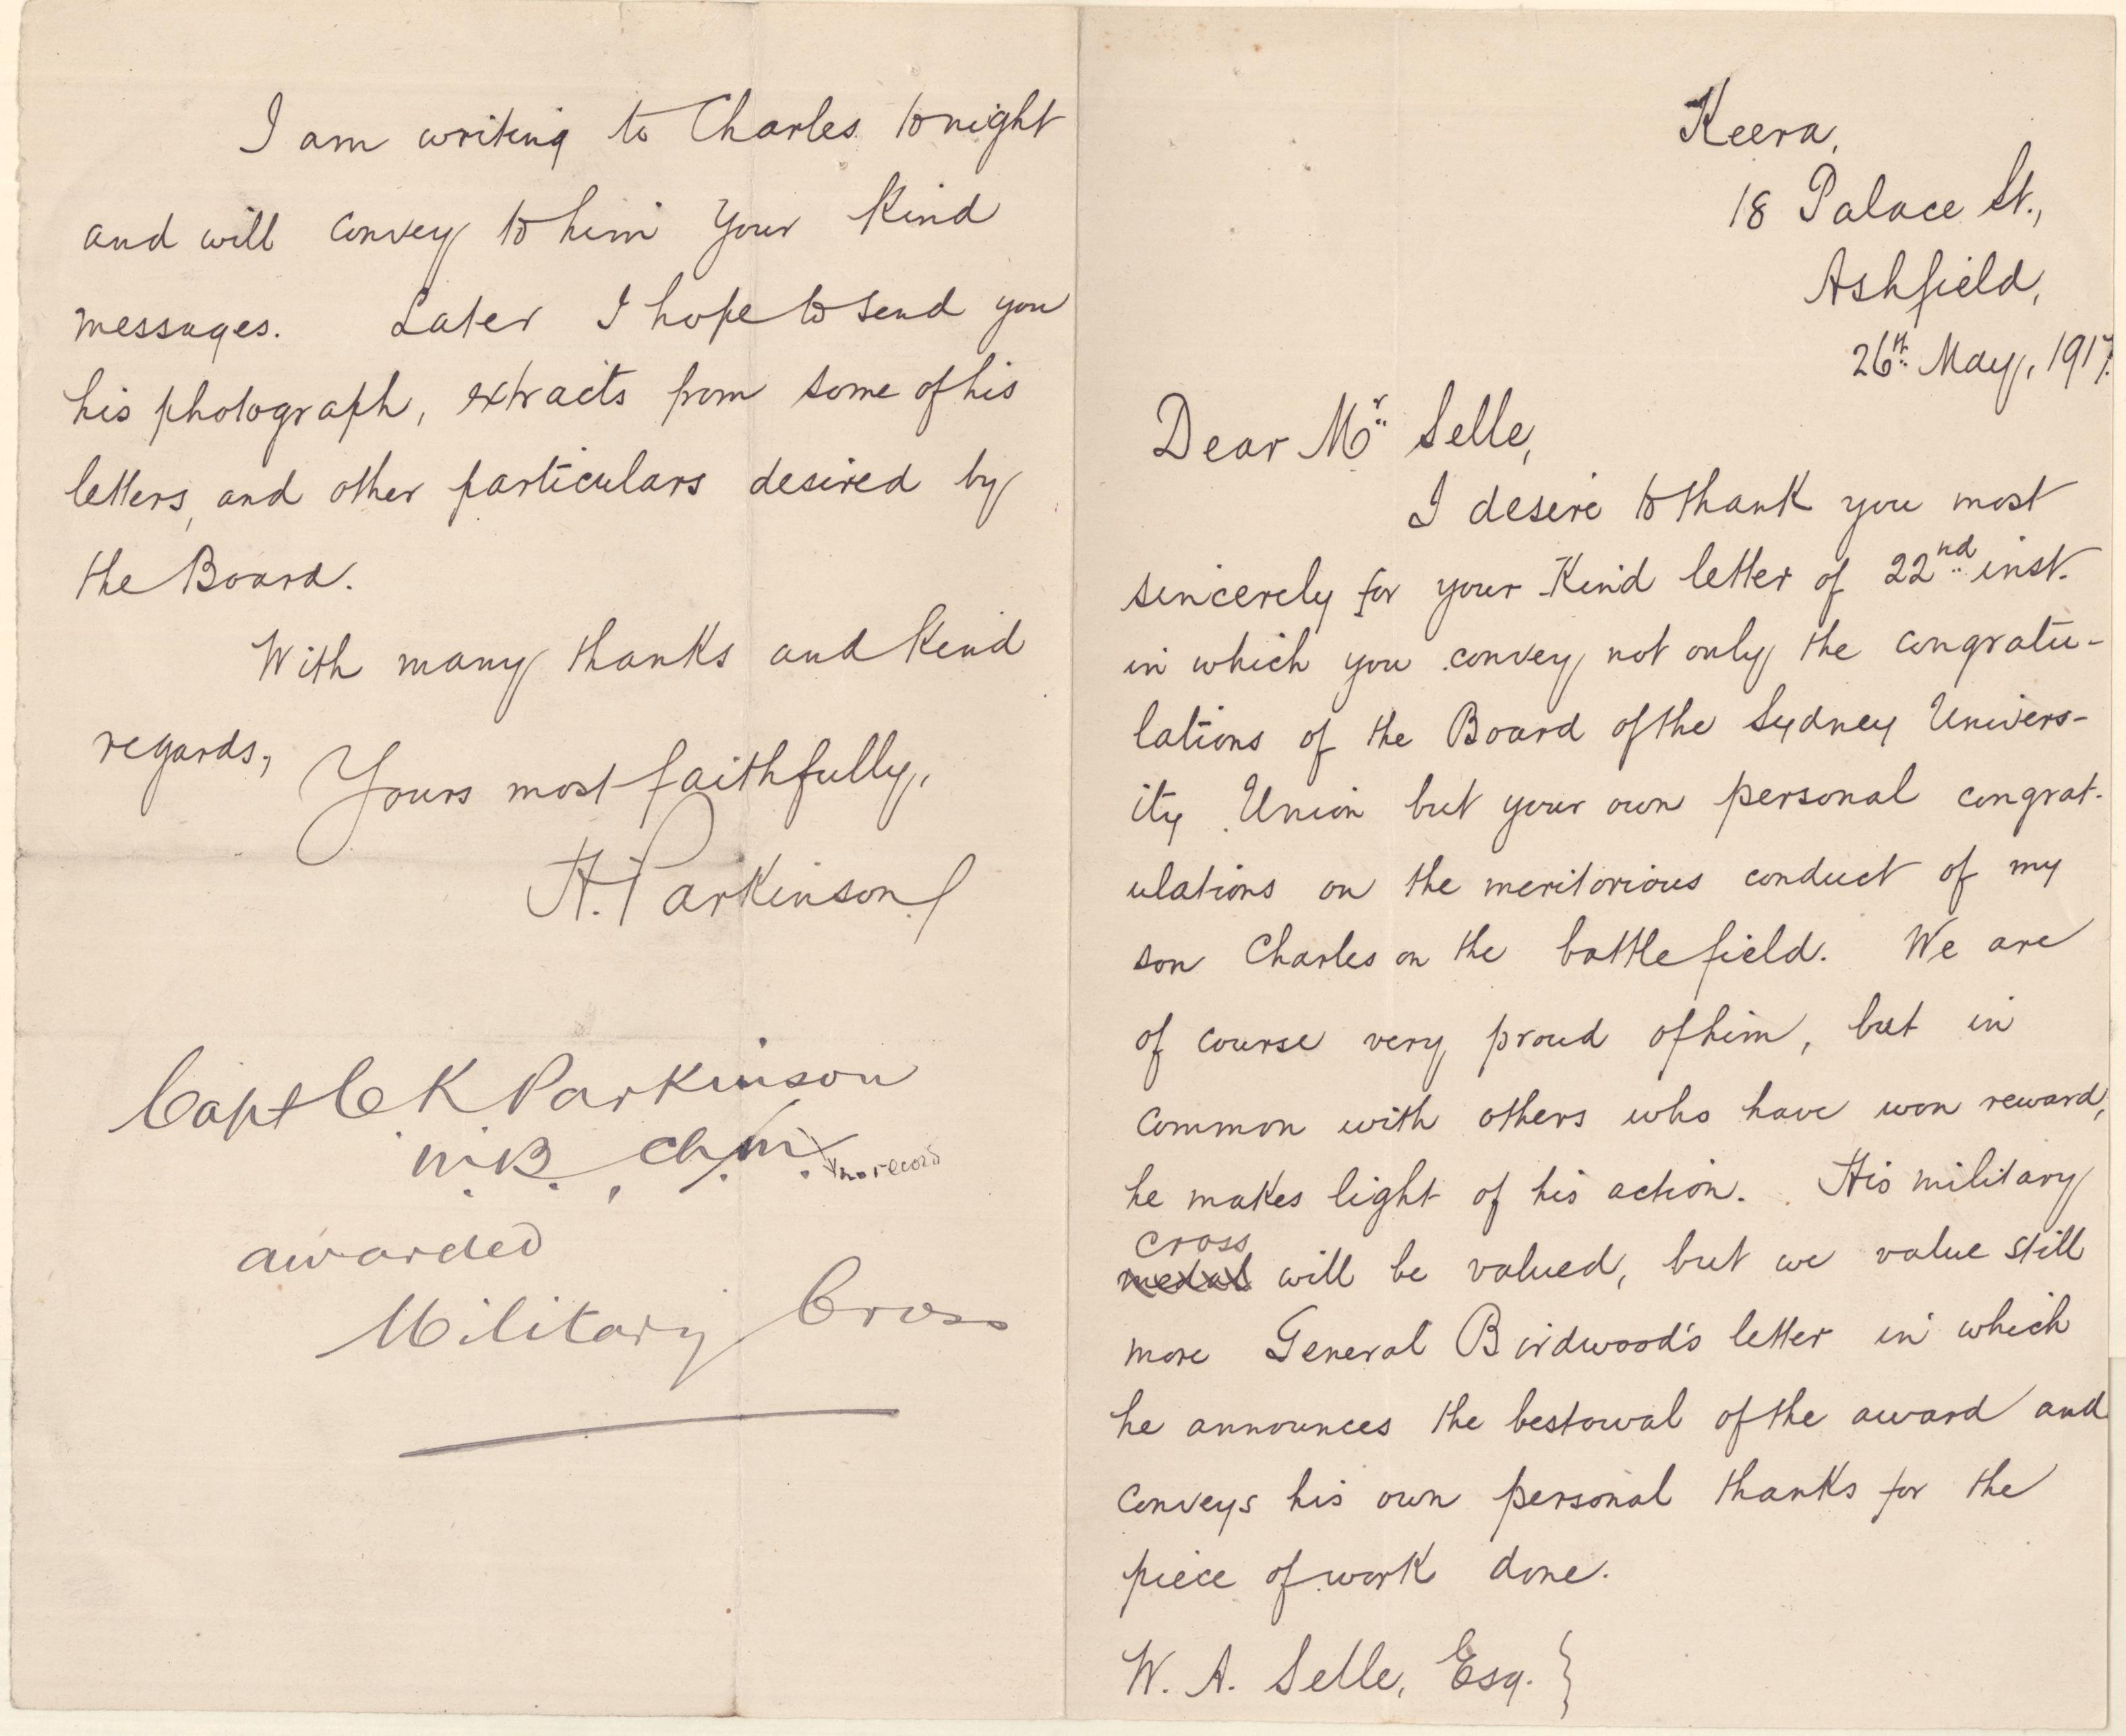 Keera,
18 Palace St.,
Ashfield,
26th May, 1917.
Dear Mr Selle,
I desire to thank you most
sincerely for your kind letter of 22nd inst.
in which you convey not only the congratu-
lations of the Board of the Sydney Univers-
ity Union but your own personal congrat-
ulations on the meritorious conduct of my
son Charles on the battlefield. We are
of course very proud of him, but in
common with others who have won reward,
he makes light of his action. His military
cross
medal will be valued, but we value still
more General Birdwood's letter in which
he announces the bestowal of the award and
conveys his own personal thanks for the
piece of work done.
W. A. Selle, Esq. }
I am writing to Charles tonight
and will convey to him your kind
messages. Later I hope to send you
his photograph, extracts from some of his
letters, and other particulars desired by
the Board.
With many thanks and kind
regards,
Yours most faithfully,
H. Parkinson
Capt C K Parkinson
M.B., Ch.M.
no record
awarded
Military Cross